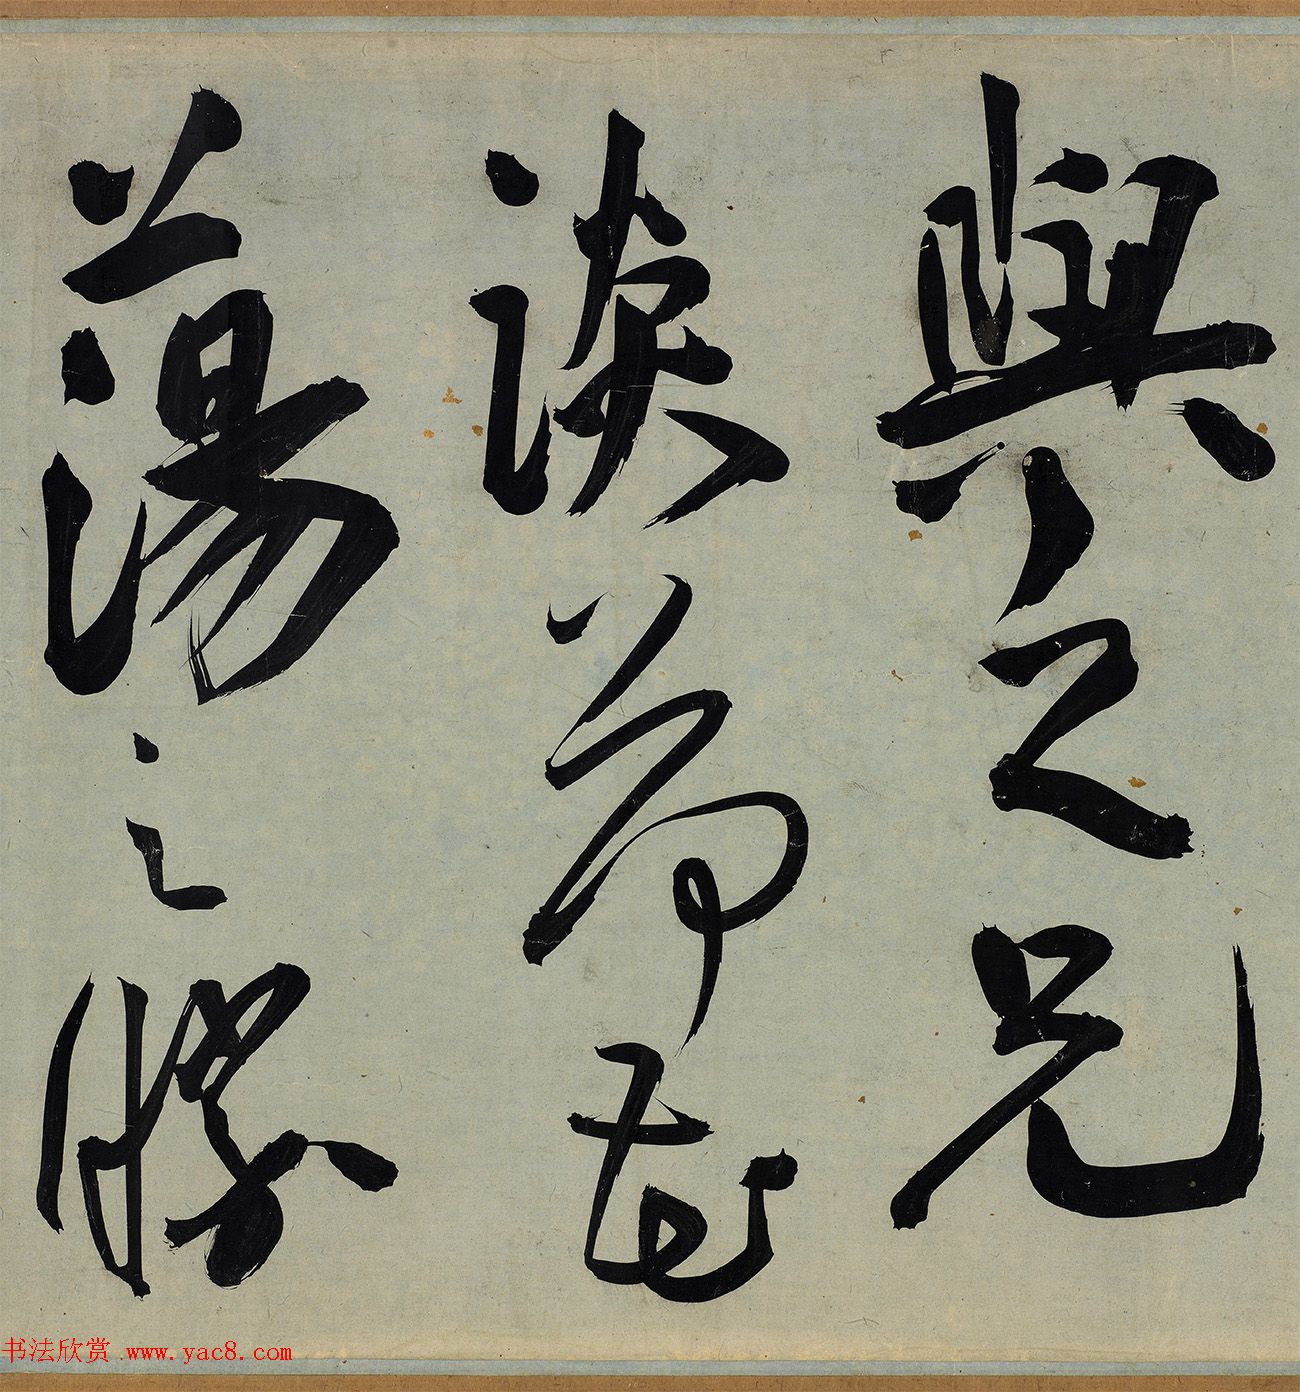 與之兄
談荷花
蕩之勝
书法欣赏 www.yac8.com